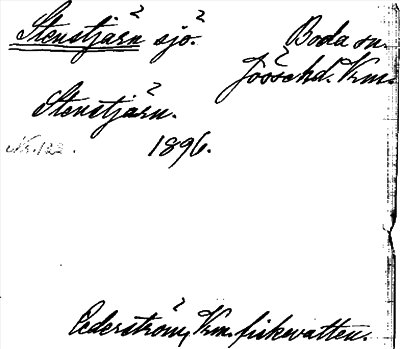 Stenstjärn sjö.
Boda sn.
Jösse hd. Vrm.
Stenstjärn.
Nr. 122. 1896.
Cederström, Vrm. fiskevatten.